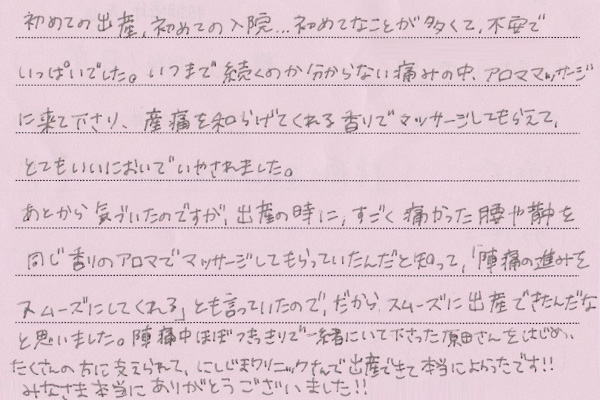 初めての出産,初めての入院…初めてなことが多くて,不安で
いっぱいでした。いつまで続くのか分からない痛みの中、アロママッサージ
に来て下さり、産痛を和らげてくれる香りでマッサージしてもらえて,
とてもいいにおいでいやされました。
あとから気づいたのですが,出産の時に,すごく痛かった腰や背中を
同じ香りのアロマでマッサージしてもらっていたんだと知って,「陣痛の進みを
スムーズにしてくれる」とも言っていたので,だからスムーズに出産できたんだな
と思いました。陣痛中ほぼつきっきりで一緒にいて下さった原田さんをはじめ、
たくさんの方に支えられて,にしじまクリニックさんで出産できて本当によかったです!!
みなさま本当にありがとうございました!!